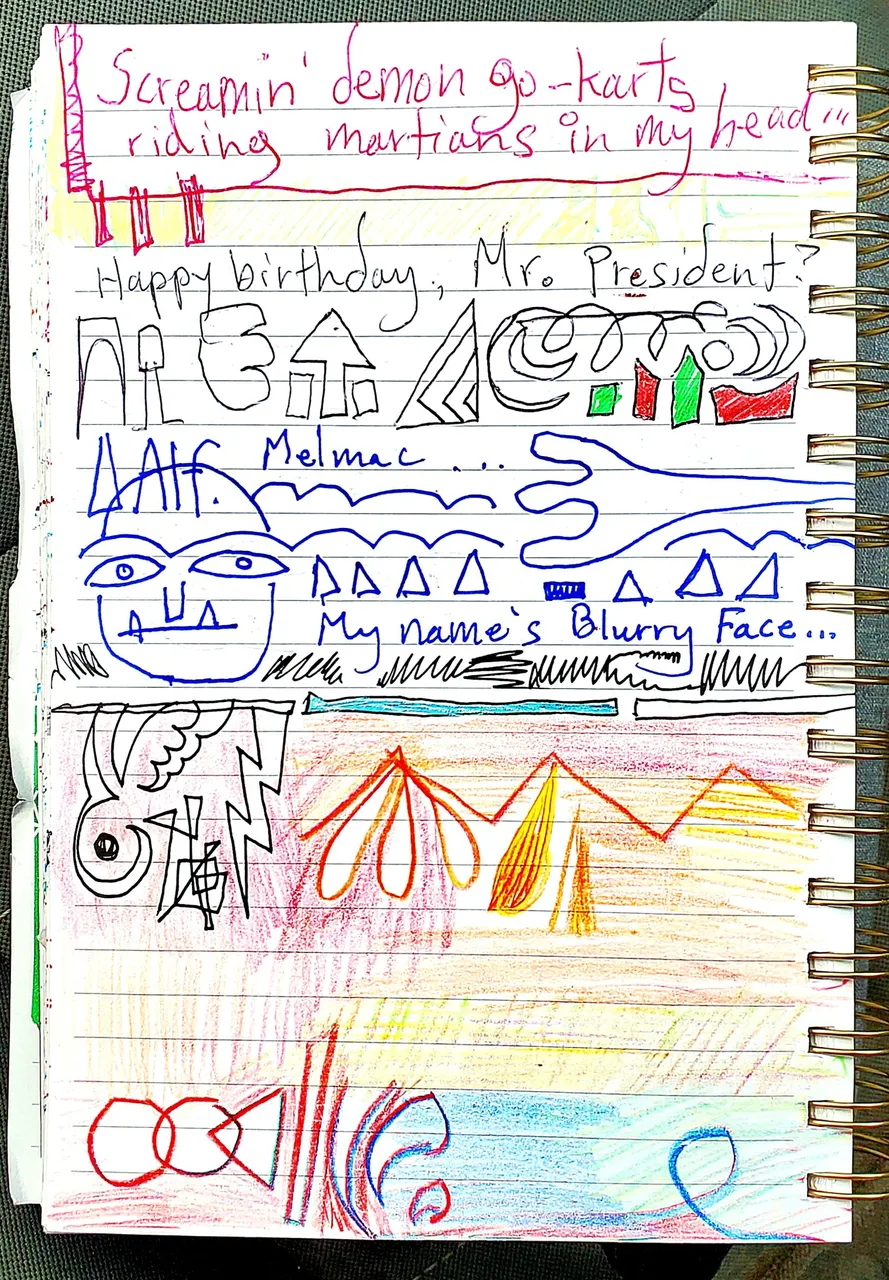 Screamin' demon go-karts,
riding martians in my head...
Happy birthday, Mr. President?
Alf. Melmac ....
My name's Blurry Face...